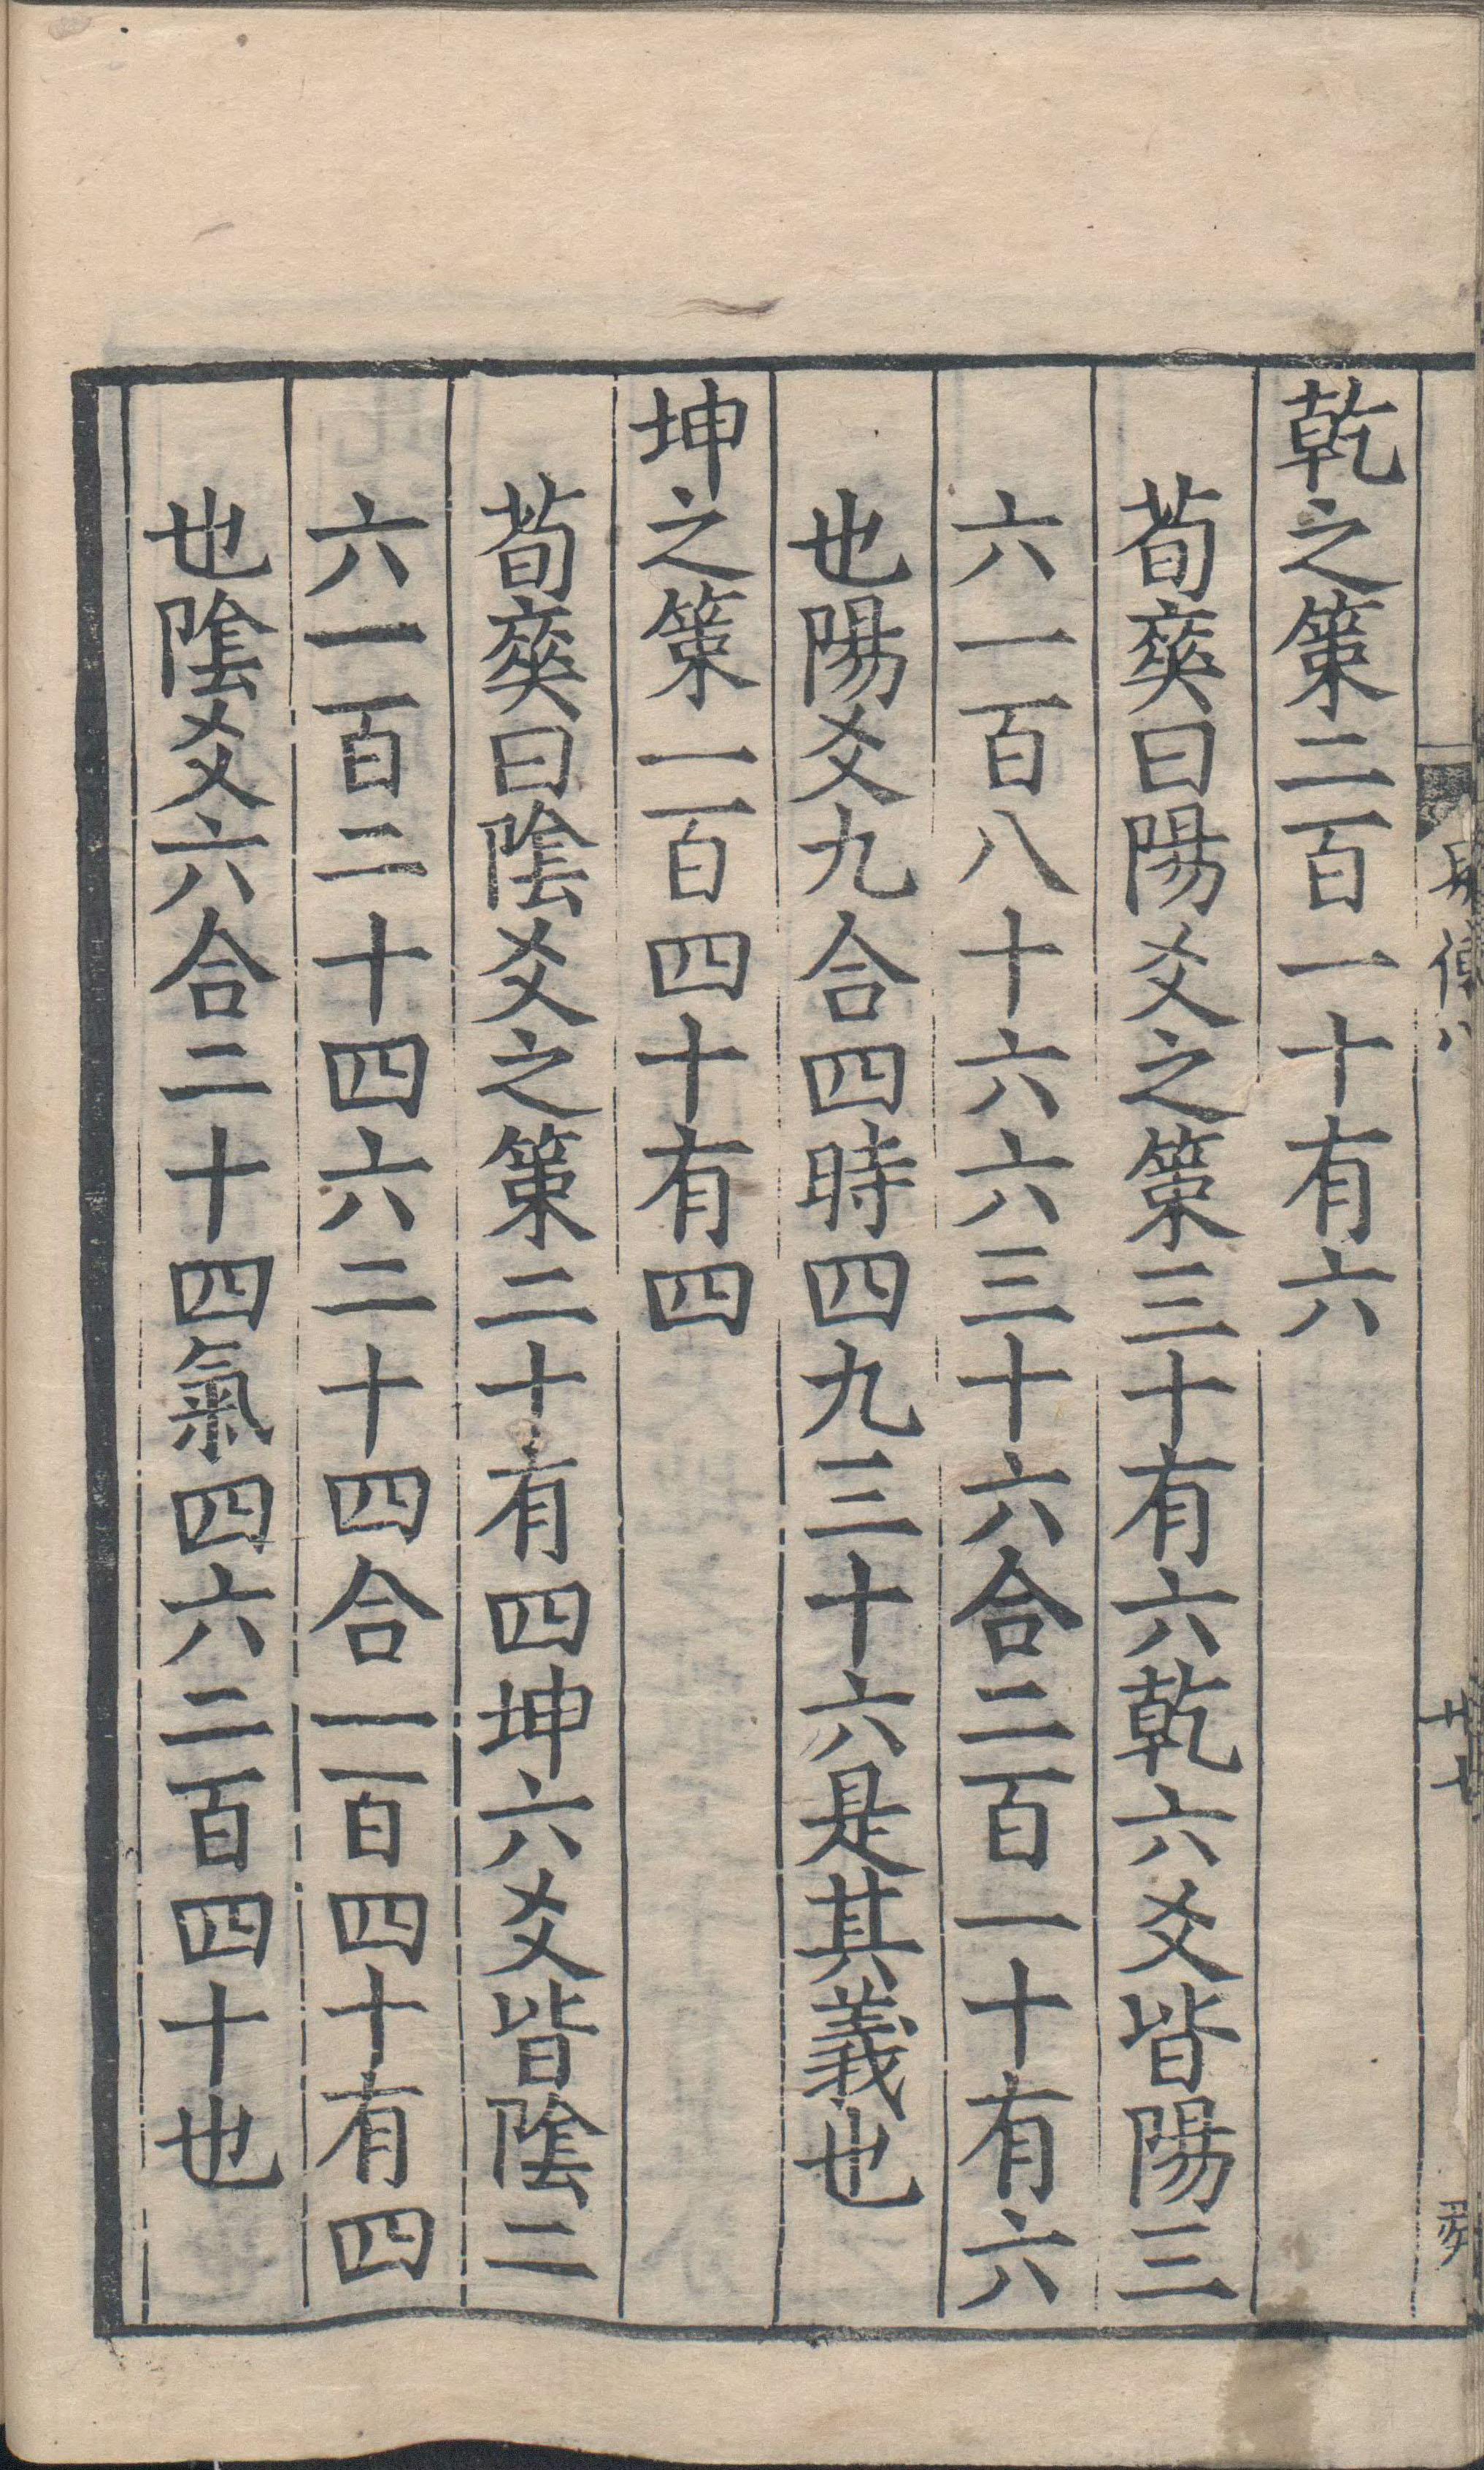 乾之策二百一十有六
荀爽曰陽爻之策三十有六乾六爻皆陽三
六一百八十六六三十六合二百一十有六
也陽爻九合四時四九三十六是其義也
坤之策一百四十有四
荀爽曰陰爻之策二十有四坤六爻皆陰二
六一百二十四六二十四合一百四十有四
也陰爻六合二十四氣四六二百四十也